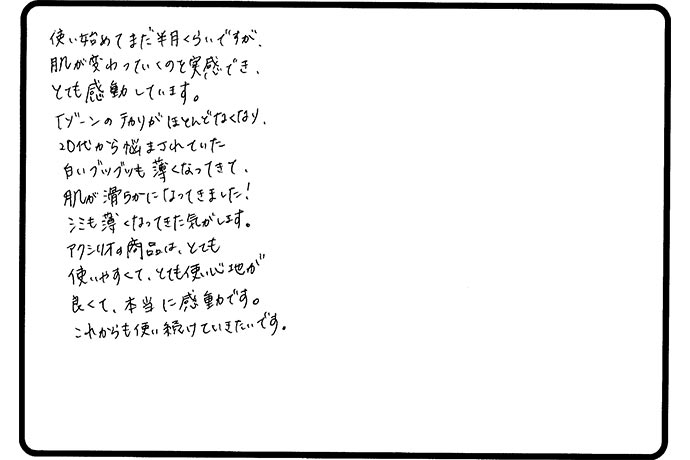 使い始めてまだ半月くらいですが、
肌が変わっていくのを実感でき、
とても感動しています。
Tゾーンのテカリがほとんどなくなり、
20代から悩まされていた
白いブツブツも薄くなってきて、
肌が滑らかになってきました!
シミも薄くなってきた気がします。
アクシリオの商品は、とても
使いやすくて、とても使い心地が
良くて、本当に感動です。
これからも使い続けていきたいです。